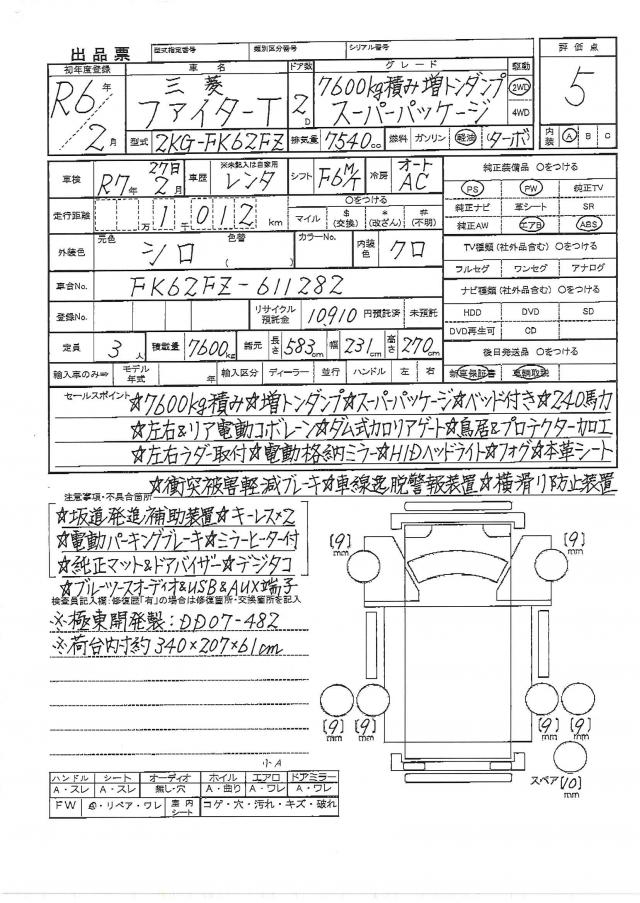 出品票 型式指定番号 類別区分番号 シリアル番号
初年度登録 車名 ドア数 グレード 駆動 評価点
R6年 三菱 2D 7600kg積み増トンダンプ 2WD 5
2月 ファイターT スーパーパッケージ 4WD
型式 2KG-FK62FZ 排気量 7540cc 燃料 ガソリン 軽油 (ターボ) 内装 A B C
車検 R7年 27日 2月 車歴 ※未記入は自家用 レンタ シフト F6M/T 冷房 オートAC 純正装備品 〇をつける
PS PW 純正TV
走行距離 万 1千 0 1 2 km 〇をつける マイル $(交換) *(改ざん) #(不明) 純正ナビ 革シート SR
純正AW エアB ABS
外装色 元色 シロ 色替 ( ) カラーNo. 内装色 クロ TV種類(社外品含む) 〇をつける
フルセグ ワンセグ アナログ
車台No. FK62FZ-611282 ナビ種類(社外品含む) 〇をつける
登録No. リサイクル預託金 10,910 円預託済 未預託 HDD DVD SD
DVD再生可 CD
定員 3人 積載量 7600kg 諸元 長さ 583cm 幅 231cm 高さ 270cm 後日発送品 〇をつける
輸入車のみ⇒ モデル年式 年 輸入区分 ディーラー 並行 ハンドル 左 右 新車保証書 車輌取説
セールスポイント ☆7600kg積み☆増トンダンプ☆スーパーパッケージ☆ベッド付き☆240馬力
☆左右&リア電動コボレーン☆ダム式カロリアゲート☆鳥居&プロテクター加工
☆左右ラダー取付☆電動格納ミラー☆HIDヘッドライト☆フォグ☆本革シート
☆衝突被害軽減ブレーキ☆車線逸脱警報装置☆横滑り防止装置
注意事項・不具合箇所
☆坂道発進補助装置☆キーレス×2
☆電動パーキングブレーキ☆ミラーヒーター付
☆純正マット&ドアバイザー☆デジタコ
☆ブルーツースオーディオ&USB&AUX端子
検査員記入欄:修復歴「有」の場合は修復箇所・交換箇所を記入
※極東開発製:DD07-482
※荷台内寸約340×207×61cm
[9]mm [9]mm
[9]mm [9]mm [9]mm [9]mm
スペア [10]mm
小A
ハンドル シート オーディオ ホイル エアロ ドアミラー
A・スレ A・スレ 無し・穴 A・曲り A・ワレ A・ワレ
FW ・リペア・ワレ 室内シート コゲ・穴・汚れ・キズ・破れ